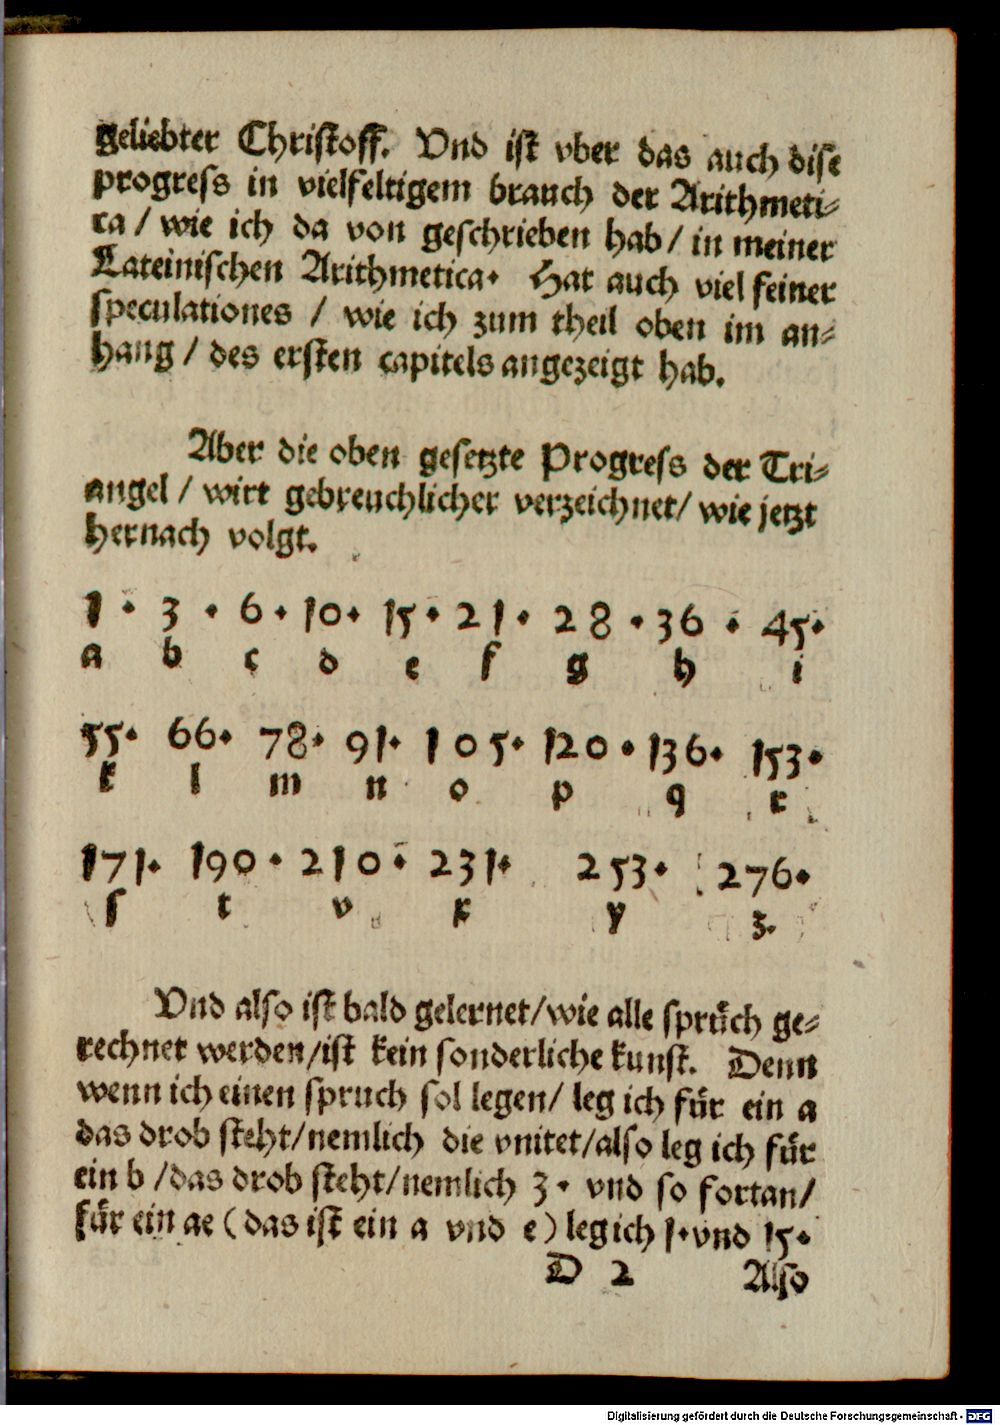 geliebter Christoff. Vnd ist vber das auch dise
progress in vielfeltigem brauch der Arithmeti⸗
ca / wie ich da von geschrieben hab / in meiner
Lateinischen Arithmetica. Hat auch viel feiner
speculationes / wie ich zum theil oben im an⸗
hang / des ersten capitels angezeigt hab.
Aber die oben gesetzte Progress der Tri⸗
angel / wirt gebreuchlicher verzeichnet / wie jetzt
hernach volgt.
1 . 3 . 6 . 10 . 15 . 21 . 28 . 36 . 45 .
a b c d e f g h i
55 . 66 . 78 . 91 . 105 . 120 . 136 . 153 .
k l m n o p q r
171 . 190 . 210 . 231 . 253 . 276 .
s t v x y z.
Vnd also ist bald gelernet / wie alle sprůch ge⸗
rechnet werden / ist kein sonderliche kunst. Denn
wenn ich einen spruch sol legen / leg ich fůr ein a
das drob steht / nemlich die vnitet / also leg ich fůr
ein b / das drob steht / nemlich 3 . vnd so fortan /
fůr ein ae ( das ist ein a vnd e ) leg ich 1 . vnd 15 .
D 2 Also
Digitalisierung gefördert durch die Deutsche Forschungsgemeinschaft - DFG